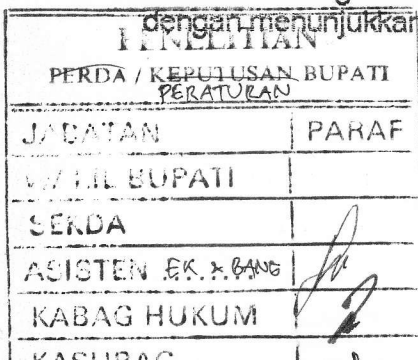 dengan menunjukkan
PENELITIAN
PERDA / KEPUTUSAN BUPATI
PERATURAN
JABATAN PARAF
WAKIL BUPATI
SEKDA
ASISTEN EK & BANG
KABAG HUKUM
KASUBAG